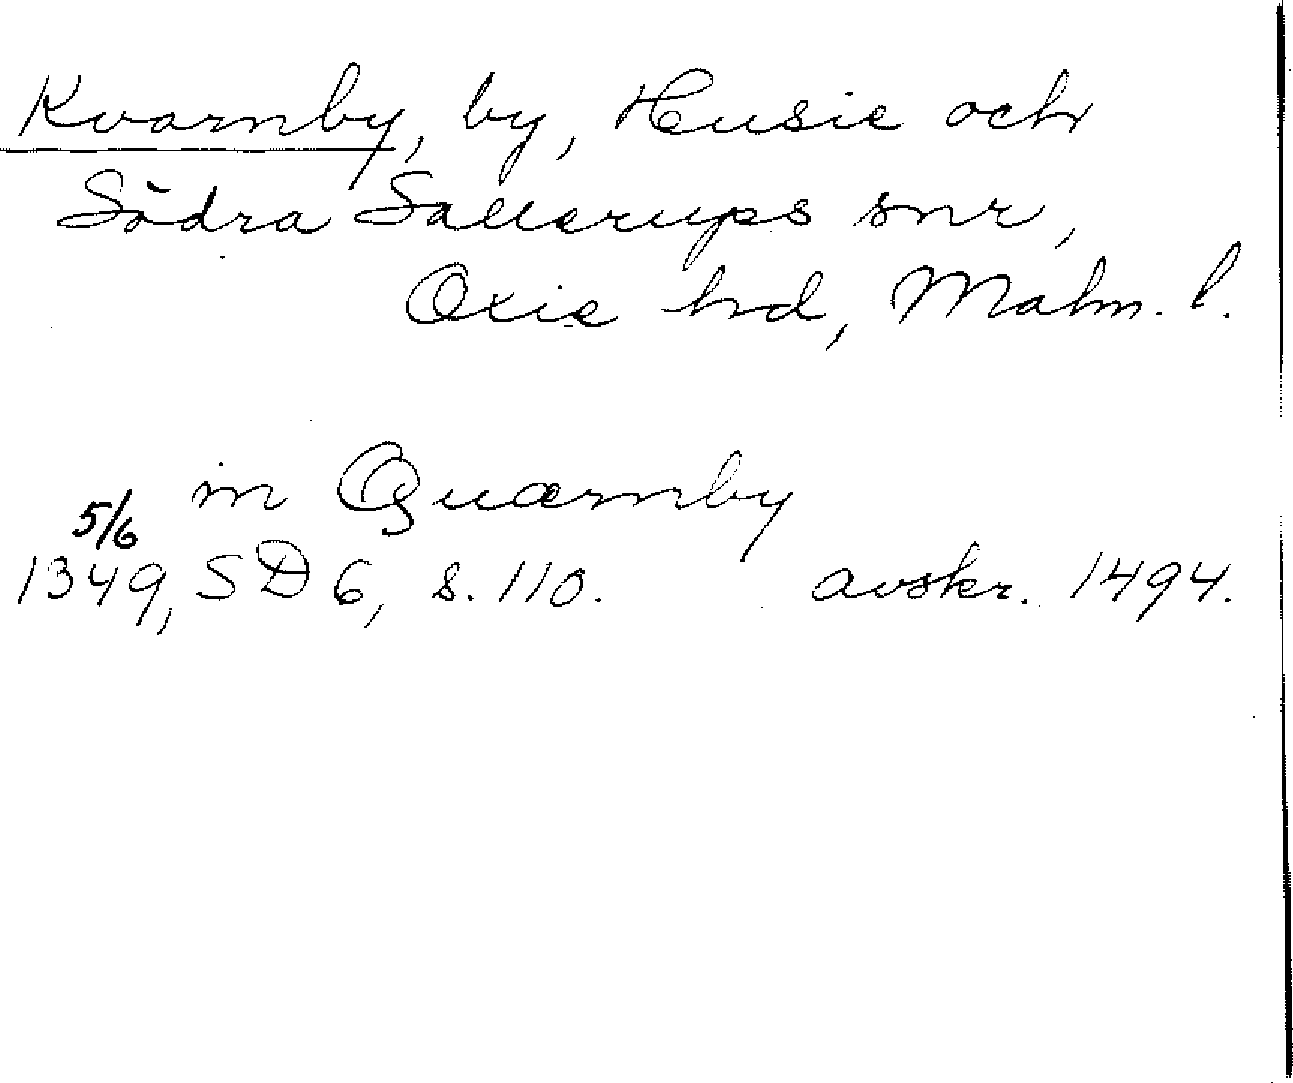 Kvarnby, by, Husie och
Södra Sallerups snr,
Oxie hd, Malm. l.
in Quærnby
5/6
1349, SD 6, s. 110. avskr. 1494.